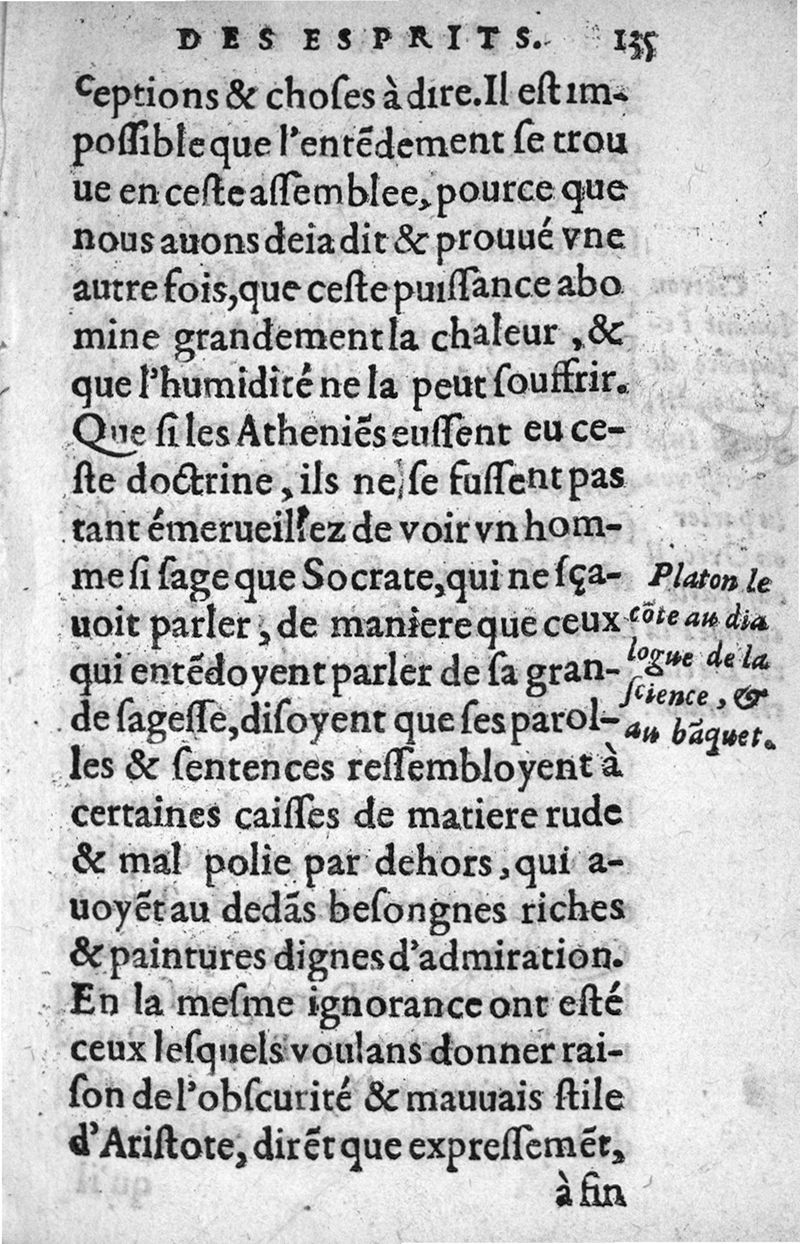 DES ESPRITS. 135
ceptions & choſes à dire. Il eſt im-
poſſible que l'entẽdement ſe trou
ue en ceſte aſſemblee, pource que
nous auons deia dit & prouué vne
autre fois, que ceſte puiſſance abo
mine grandement la chaleur, &
que l'humidité ne la peut ſouffrir.
Que ſi les Atheniẽs euſſent eu ce-
ſte doctrine, ils ne ſe fuſſent pas
tant émerueillez de voir vn hom-
me ſi ſage que Socrate, qui ne ſça-
uoit parler, de maniere que ceux
qui entẽdoyent parler de ſa gran-
de ſageſſe, diſoyent que ſes parol-
les & ſentences reſſembloyent à
certaines caiſſes de matiere rude
& mal polie par dehors, qui a-
uoyẽt au dedãs beſongnes riches
& paintures dignes d'admiration.
En la meſme ignorance ont eſté
ceux leſquels voulans donner rai-
ſon de l'obſcurité & mauuais ſtile
d'Ariſtote, dirẽt que expreſſemẽt,
à fin
Platon le
cõte au dia
logue de la
ſcience, &
au bãquet.